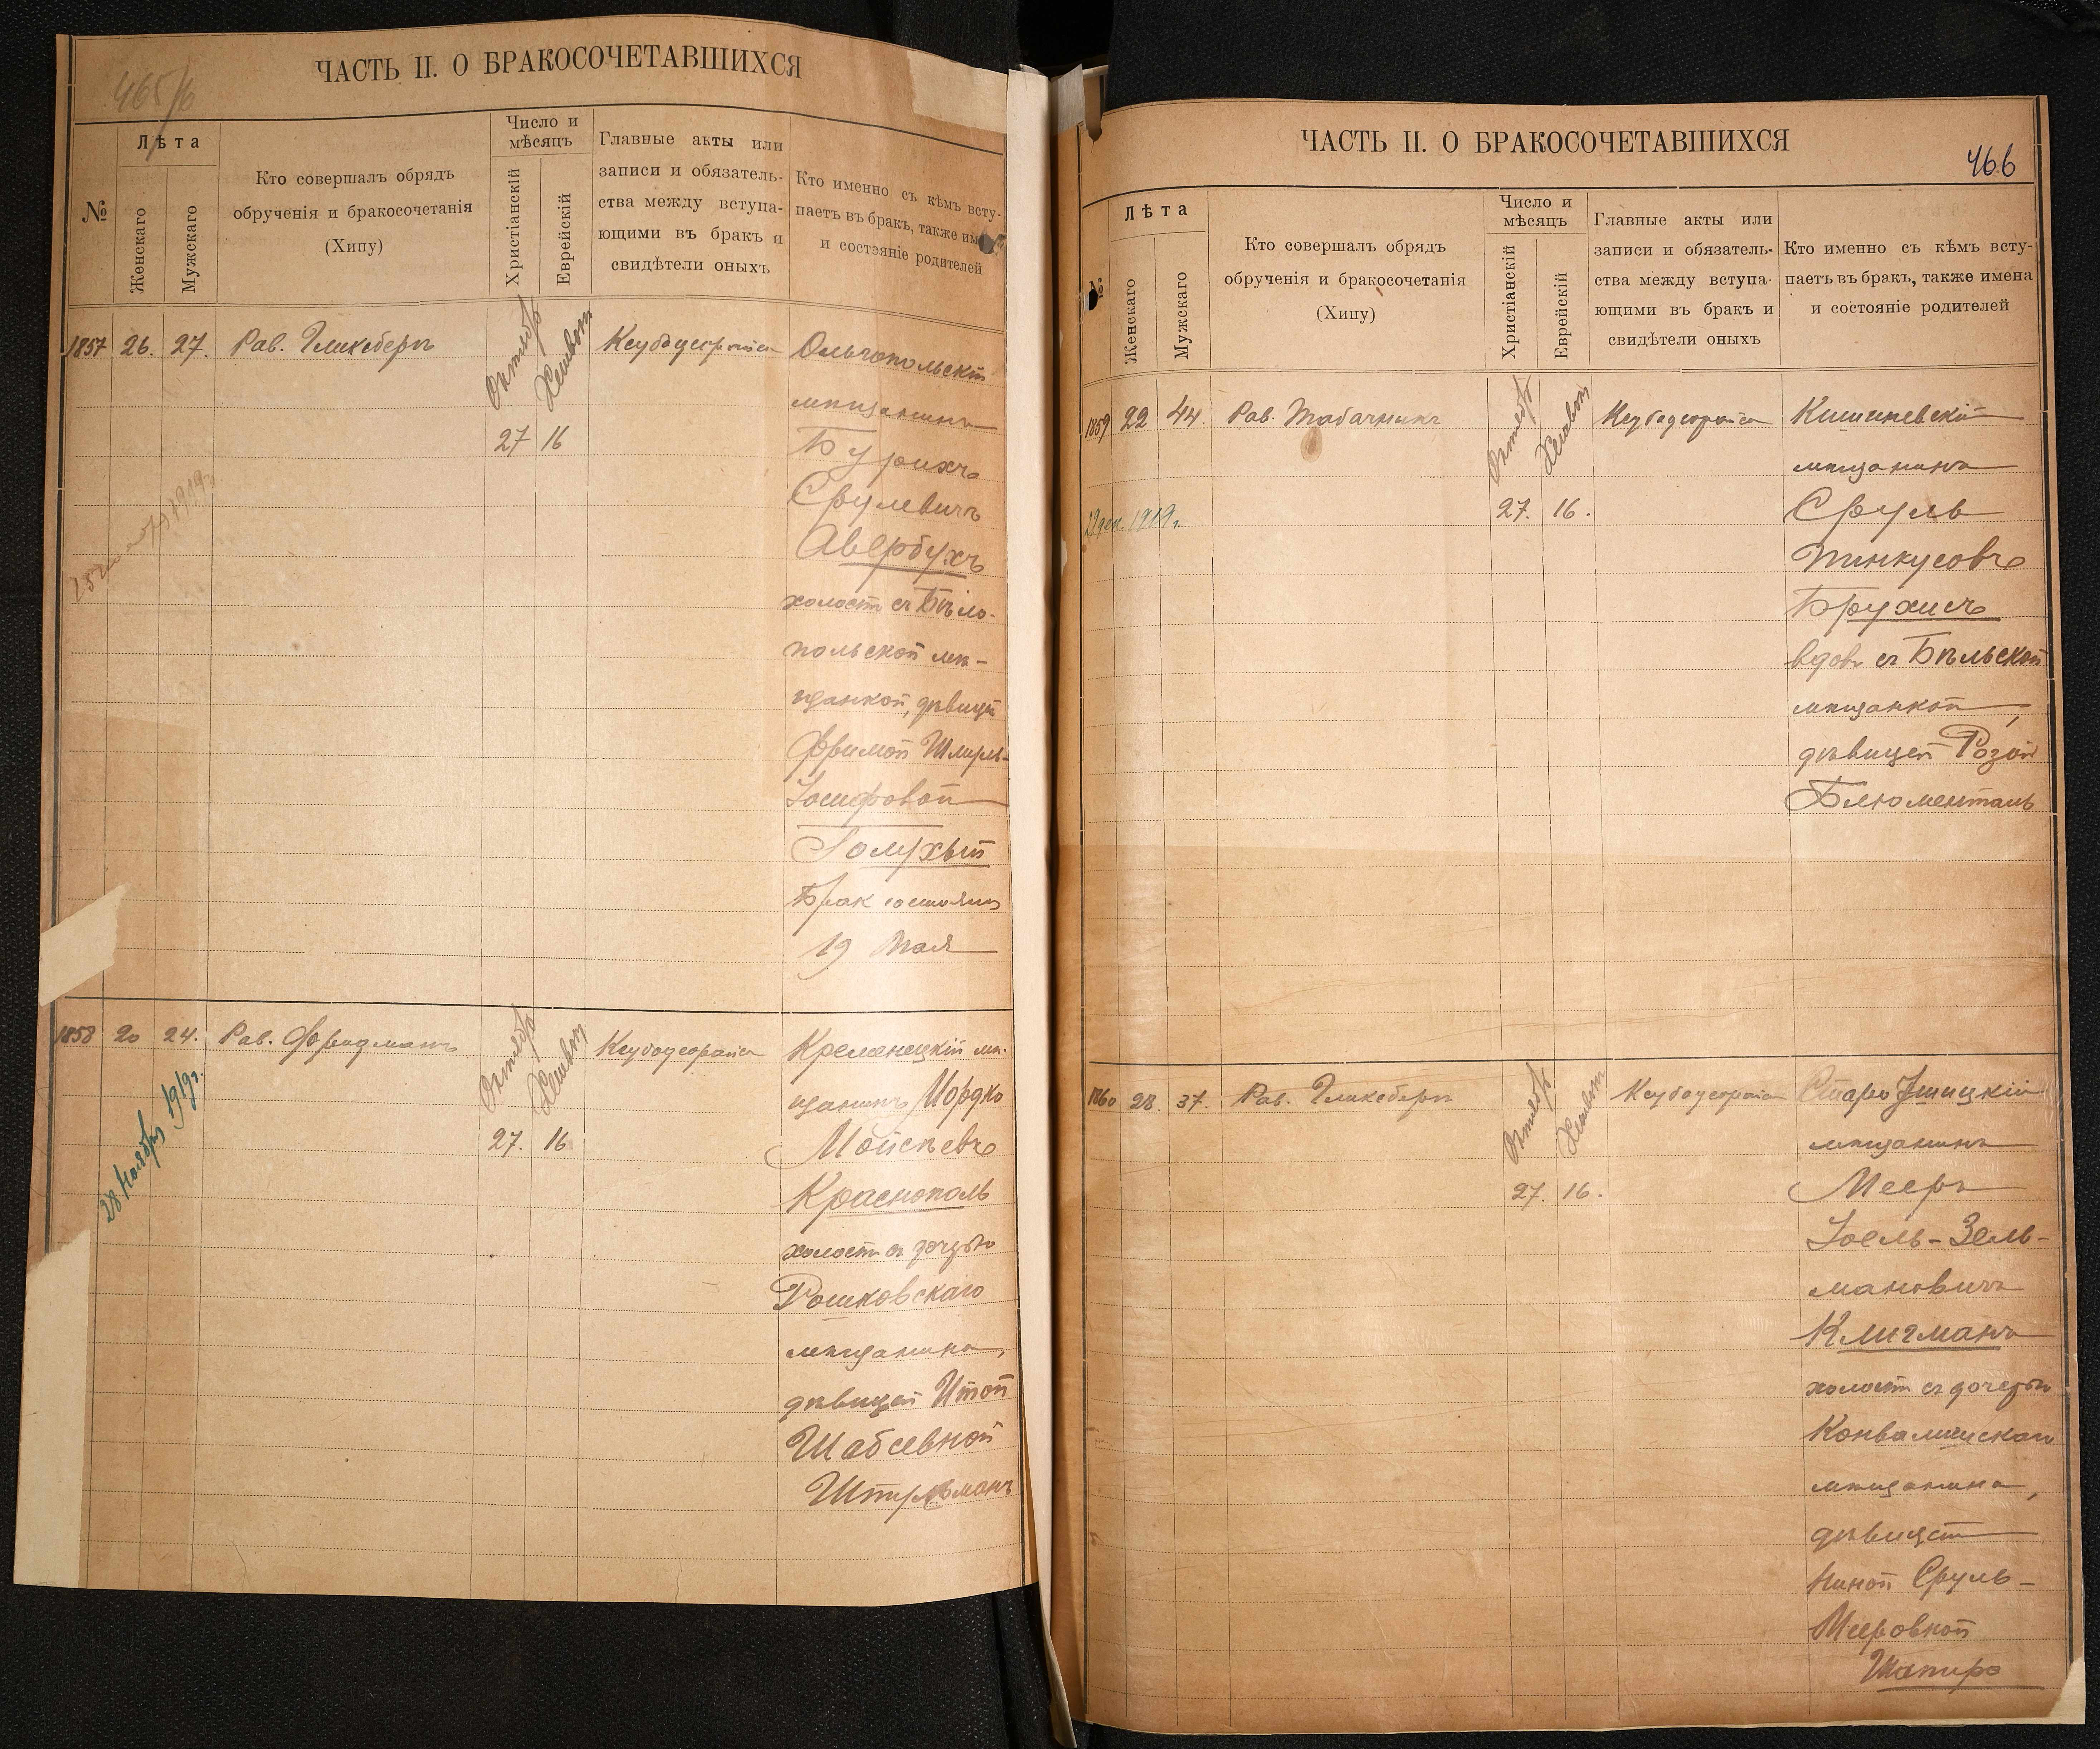 465/б
ЧАСТЬ II. О БРАКОСОЧЕТАВШИХСЯ
№
Лѣта
Женскаго
Мужскаго
Кто совершалъ обрядъ
обрученія и бракосочетанія
(Хипу)
Число и
мѣсяцъ
Христіанскій
Еврейскій
Главные акты или
записи и обязатель-
ства между вступа-
ющими въ бракъ и
свидѣтели оныхъ
Кто именно съ кѣмъ всту-
паетъ въ бракъ, также им
и состояніе родителей
1857 26. 27. Рав. Гликсбергъ
Октябр Хешвон
27 16
Ольгопольскій
мѣщанинъ
Бурихъ
Срулевичъ
Авербухъ
холост съ Бѣло-
польской мѣ-
щанкой, дѣвицей
Фримой Шмиль-
Іосифовой
Голухъ
Брак состоялся
19 Мая
1919г.
1858 20 24. Рав. Фридманъ
Октябр Хешвон
27. 16
Кременецкій мѣ-
щанинъ Мордко
Мойсѣевъ
Краснополь
холостъ съ дочерью
Рашковскаго
мѣщанина,
дѣвицей Итой
Шабсевной
28 Ноября 1919г.
ЧАСТЬ II. О БРАКОСОЧЕТАВШИХСЯ
466
№
Лѣта
Женскаго
Мужскаго
Кто совершалъ обрядъ
обрученія и бракосочетанія
(Хипу)
Число и
мѣсяцъ
Христіанскій
Еврейскій
Главные акты или
записи и обязатель-
ства между вступа-
ющими въ бракъ и
свидѣтели оныхъ
Кто именно съ кѣмъ всту-
паетъ въ бракъ, также имена
и состояніе родителей
1859 22 44. Рав. Табачникъ
Октябр Хешвон
27. 16.
Кишиневскій
мѣщанинъ
Сруль
Пинкусовъ
Брухисъ
вдов съ Бѣльской
мѣщанкой,
дѣвицей Розой
Блюменталь
22 дек. 1919г.
1860 28. 37. Рав. Гликсбергъ
Октябр Хешвон
27. 16.
Старо Ушицкій
мѣщанинъ
Мееръ
Іоель-Зель-
мановичъ
Клигманъ
холостъ съ дочерью
мѣщанина,
дѣвицей
Ниной Сруль-
Мееровной
Шапиро